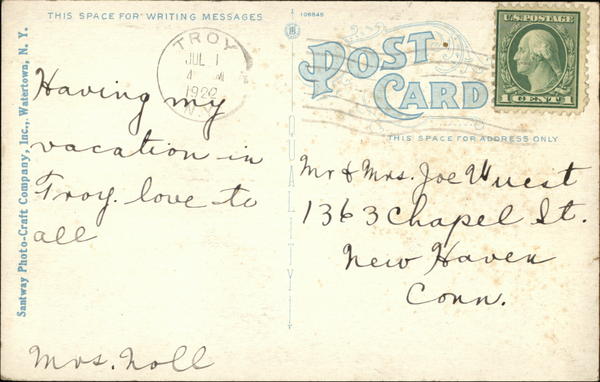 THIS SPACE FOR WRITING MESSAGES
106845
TROY
JUL 1
4 M
1920
N.Y.
U.S. POSTAGE
1 CENT 1
POST CARD
THIS SPACE FOR ADDRESS ONLY
Having my
vacation in
Troy. love to
all
Mrs. Noll
Mr & Mrs. Joe Wuest
1363 Chapel St.
New Haven
Conn.
QUALITY
Santway Photo-Craft Company, Inc., Watertown, N. Y.